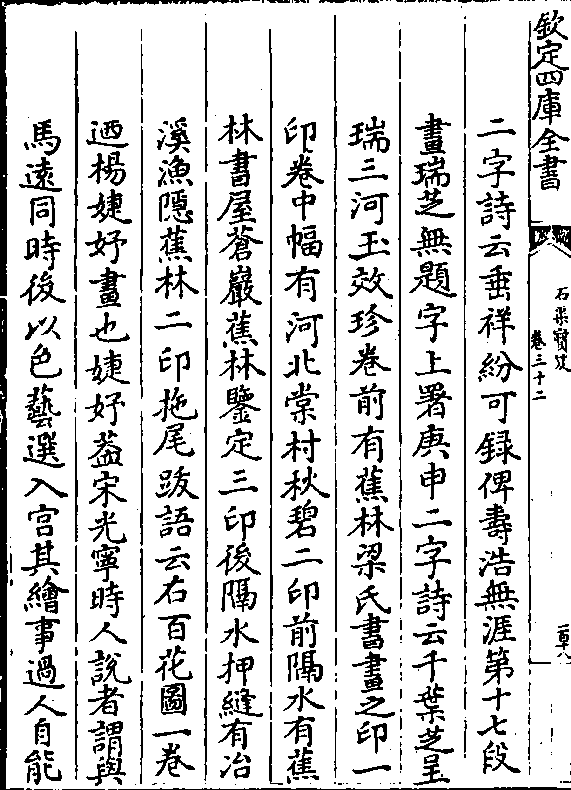 欽定四庫全書
石渠寶笈
卷三十二
二字詩云垂祥紛可録俾壽浩無涯第十七段
畫瑞芝無題字上署庚申二字詩云千葉芝呈
瑞三河玉效珍卷前有蕉林梁氏書畫之印一
印卷中幅有河北棠村秋碧二印前隔水有蕉
林書屋蒼巖蕉林鑒定三印後隔水押縫有冶
溪漁隱蕉林二印拖尾跋語云右百花圖一卷
迺楊婕妤畫也婕妤葢宋光寧時人說者謂與
馬遠同時後以色藝選入宫其繪事過人自能